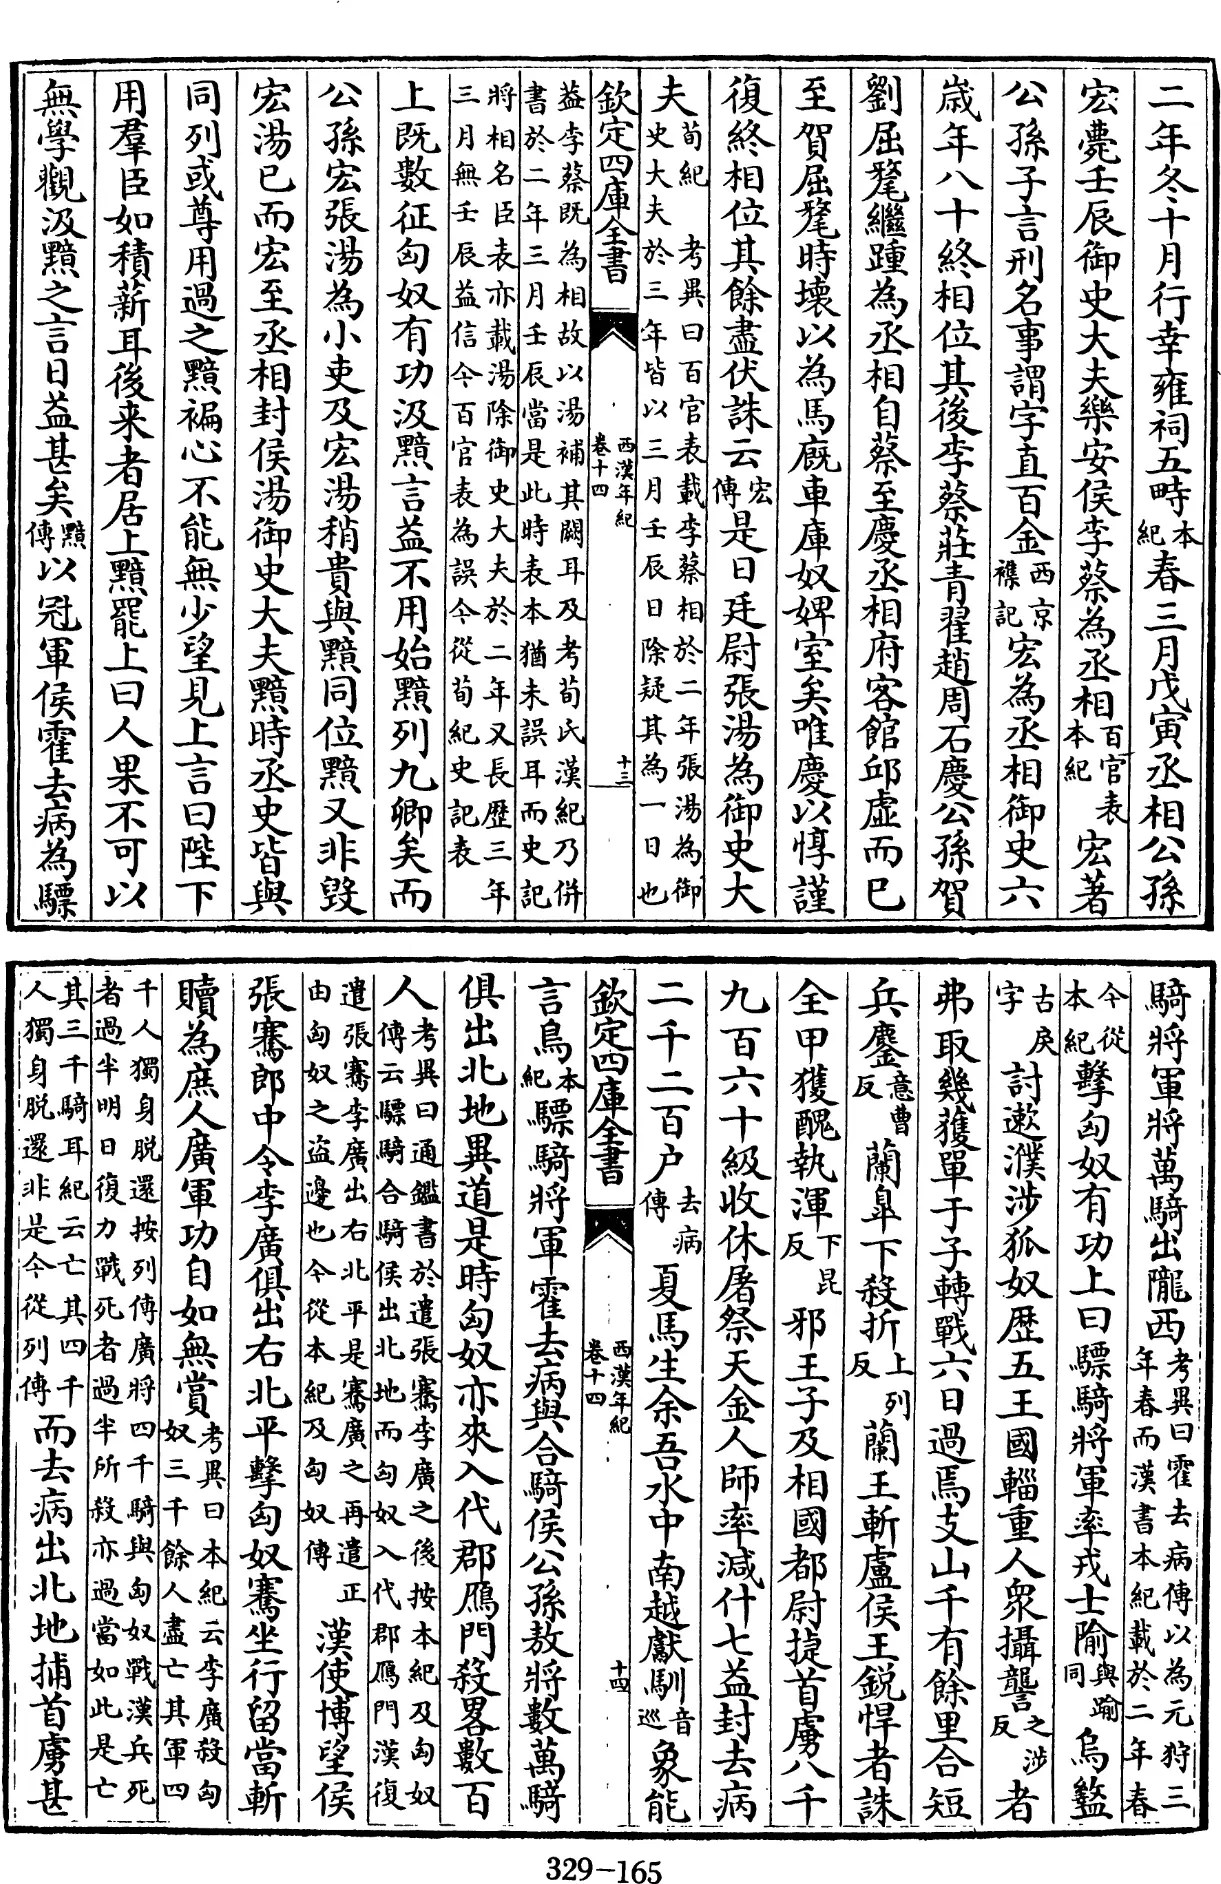 二年冬十月行幸雍祠五畤本紀春三月戊寅丞相公孫
宏薨壬辰御史大夫樂安侯李蔡為丞相百官表本紀宏著
公孫子言刑名事謂字直百金西京襍記宏為丞相御史六
歲年八十終相位其後李蔡莊青翟趙周石慶公孫賀
劉屈氂繼踵為丞相自蔡至慶丞相府客館邱虛而已
至賀屈氂時壊以為馬廐車庫奴婢室矣唯慶以惇謹
復終相位其餘盡伏誅云宏傳是日廷尉張湯為御史大
夫荀紀考異曰百官表載李蔡相於二年張湯為御史大夫於三年皆以三月壬辰日除疑其為一日也
欽定四庫全書
西漢年紀卷十四
十三
益李蔡既為相故以湯補其闕耳及考荀氏漢紀乃併書於二年三月壬辰當是此時表本猶未誤耳而史記
將相名臣表亦載湯除御史大夫於二年又長歴三年三月無壬辰益信今百官表為誤今從荀紀史記表
上既數征匈奴有功汲黯言益不用始黯列九卿矣而
公孫宏張湯為小吏及宏湯稍貴與黯同位黯又非毀
宏湯已而宏至丞相封侯湯御史大夫黯時丞史皆與
同列或尊用過之黯褊心不能無少望見上言曰陛下
用羣臣如積薪耳後来者居上黯罷上曰人果不可以
無學觀汲黯之言日益甚矣黯傳以冠軍侯霍去病為驃
騎將軍將萬騎出隴西考異曰霍去病傳以為元狩三年春而漢書本紀載於二年春
今從本紀擊匈奴有功上曰驃騎將軍率戎士隃與踰同烏盭
古戾字討遬濮涉狐奴歴五王國輜重人衆攝讋之涉反者
弗取幾獲單于子轉戰六日過焉支山千有餘里合短
兵鏖意曹反蘭臯下殺折上列反蘭王斬盧侯王銳悍者誅
全甲獲醜執渾下昆反邪王子及相國都尉捷首虜八千
九百六十級收休屠祭天金人師率減什七益封去病
二千二百户去病傳夏馬生余吾水中南越獻馴音巡象能
欽定四庫全書
西漢年紀卷十四
十四
言鳥本紀驃騎將軍霍去病與合騎侯公孫敖將數萬騎
俱出北地異道是時匈奴亦來入代郡鴈門殺畧數百
人考異曰通鑑書於遣張騫李廣之後按本紀及匈奴傳云驃騎合騎侯出北地而匈奴入代郡鴈門漢復
遣張騫李廣出右北平是騫廣之再遣正由匈奴之盜邊也今從本紀及匈奴傳漢使博望侯
張騫郎中令李廣俱出右北平擊匈奴騫坐行留當斬
贖為庶人廣軍功自如無賞考異曰本紀云李廣殺匈奴三千餘人盡亡其軍四
千人獨身脱還按列傳廣將四千騎與匈奴戰漢兵死者過半明日復力戰死者過半所殺亦過當如此是亡
其三千騎耳紀云亡其四千人獨身脱還非是今從列傳而去病出北地捕首虜甚
329-165